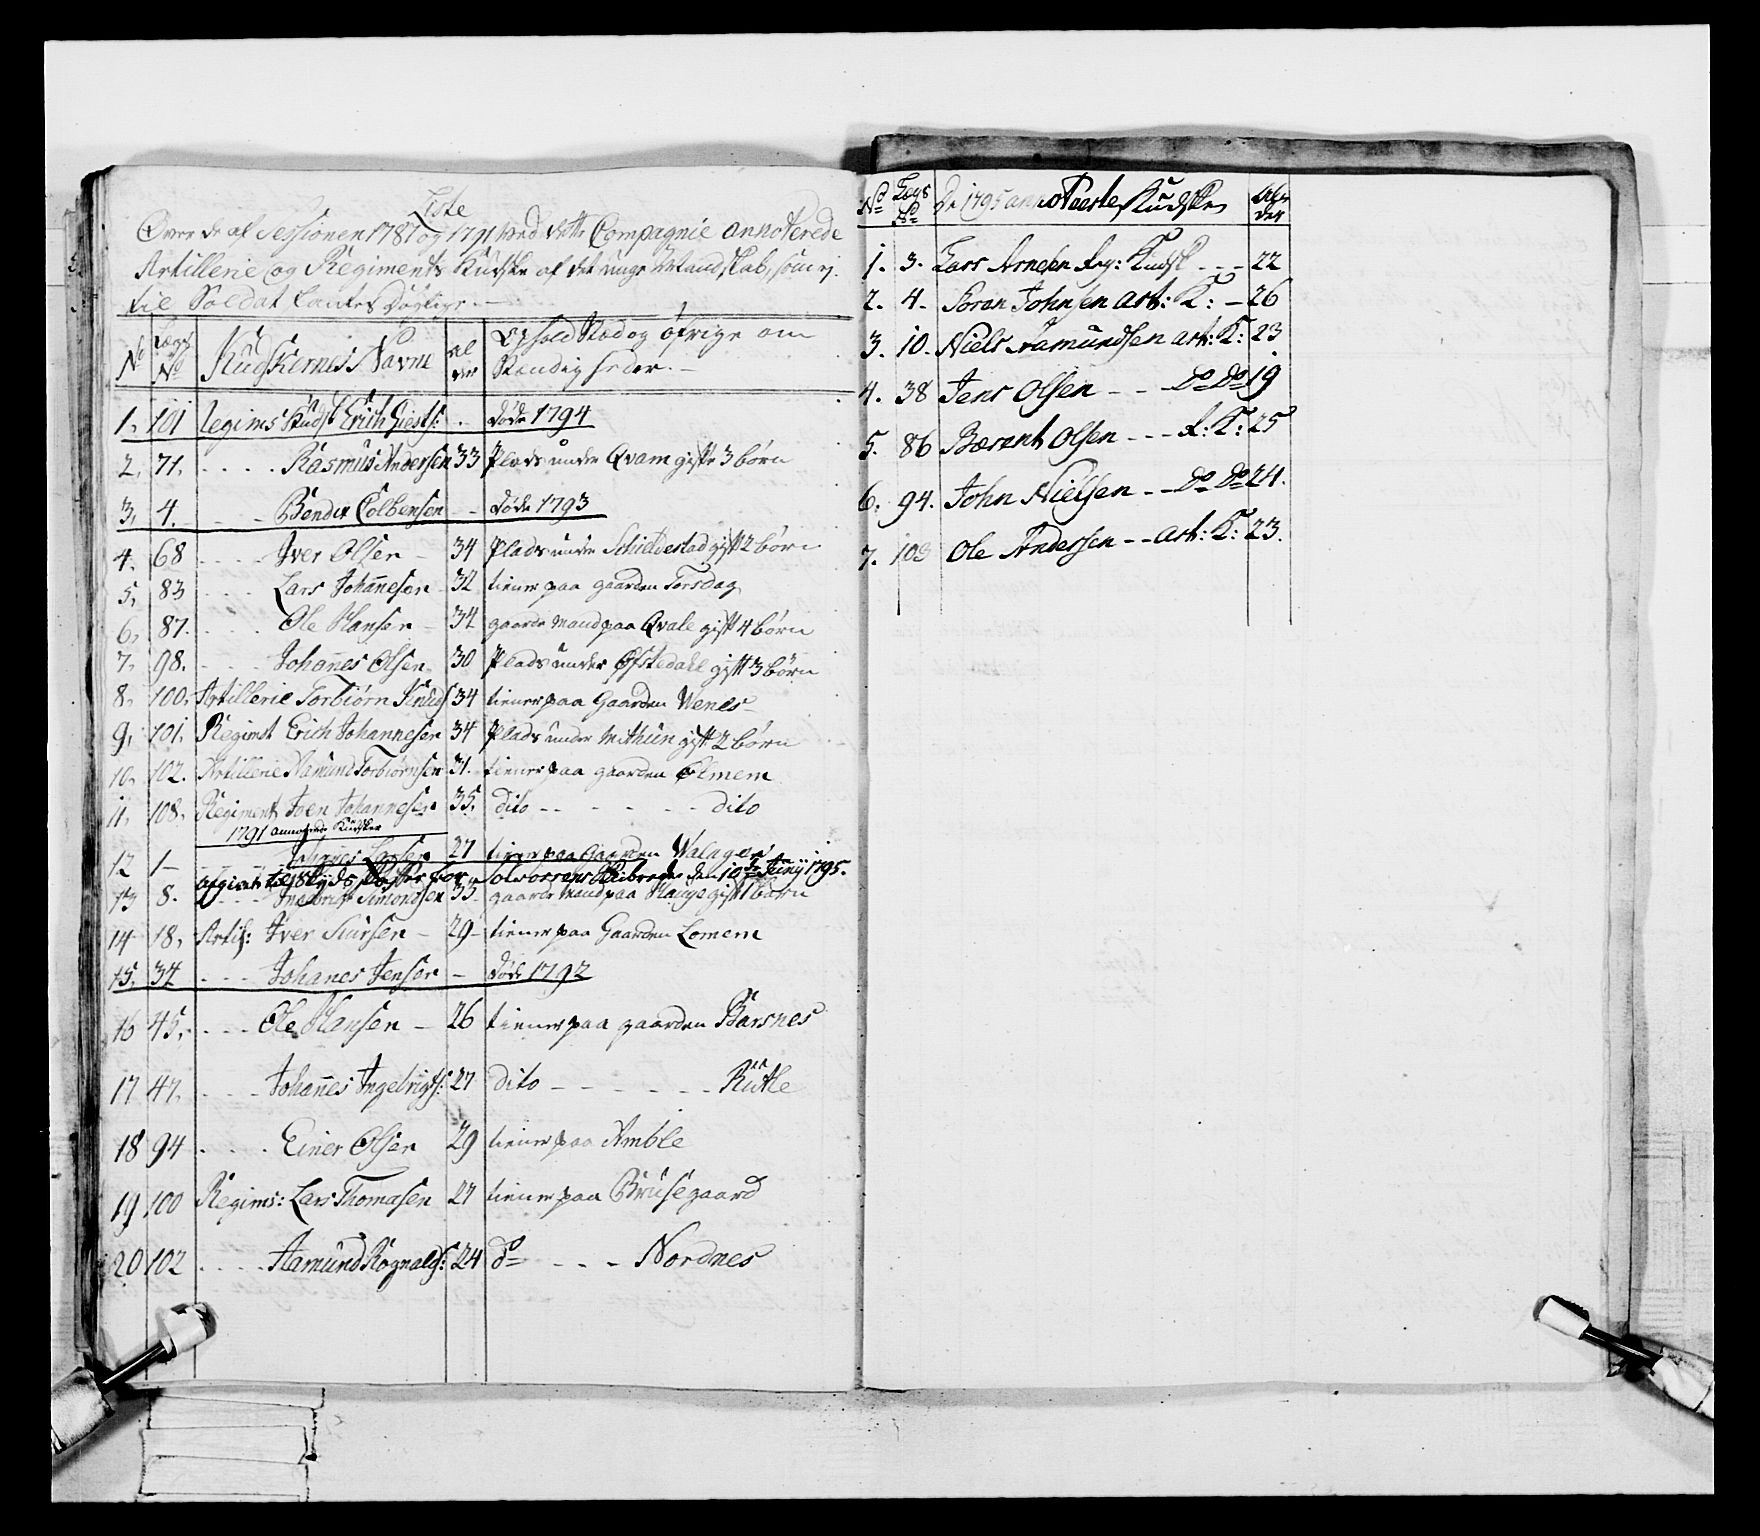 Liste
Over de af Sessionen 1787 og 1791 ved dette Compagnie annoterede
Artillerie og Regiments Kudske af det unge Mandskab, som ej
til Soldat Dögtige
No Lægs No Kudskernes Navne al der Ophold Stæd og öfrige om
Stændigheder.
1, 101 Regims Kudsk Erich Giests: . döde 1794
2, 71, . . . . Rasmus Andersen 33 Plads under Qvam gift 3 börn
3, 4. - - - Bendix Colbensen - - döde 1793
4. 68 . . . . Iver Olsen - 34 Plads under gift 2 börn
5, 83 . . . . Lars Johannesen 32 tiener paa gaarden Torsdag
6, 87. . . . Ole Hansen - 34 gaardmand paa Qvale gift 4 börn
7, 98. . . . . Johannes Olsen 30 Plads under Ofstedahl gift 3 börn
8, 100, Artillerie Torbiørn 34 tiener paa Gaarden Wenes
9, 101, Regimst Erich Johannesen 34 Plads under Mithun gift 2 börn
10, 102. Artillerie Aamund Torbiørnsen 31. tiener paa gaarden Olmem
11, 108, Regiment Joen Johannesen 35, dito - - - - - - dito
1791 annoterede Kudsker
12 1 - Johannes Larsen 27 tiener paa Gaarden
afgivet til for Solvorens den 10de Juny 1795.
13 8. - - - Ingebrigt Simondsen 33 gaardmand paa Hauge gift 1 barn
14 18, Artil: Iver Siursen - 29 - tiener paa Gaarden Lomem
15, 34 . - - Johanes Jensen - döde 1792
16 45, . - - Ole Hansen - 26 tiener paa gaarden Barsnes
17 47, . . . . Johannes Ingebrigts: 27 dito - - - - - - Rutle
18 94 . . . . Einer Olsen 29 tiener paa Amble
19 100 Regims: Lars Thomasen 27 tiener paa Brusegaard
20 102 . . . . Aamund Rognalds: 24 do - - - Nordnes
No Lægs No De 1795 annoteerte Kudske Al der
1. 3. Lars Arnesen Reg: Kudsk - - - 22
2. 4. Soren Johnsen art: K: - 26
3. 10. Niels Aamundsen art: K: 23
4. 38 Jens Olsen - - - do do 19
5. 86 Bærent Olsen - - - R: K: 25
6. 94. John Nielsen - - do do 24.
7. 103 Ole Anderssen - - art: K: 23.